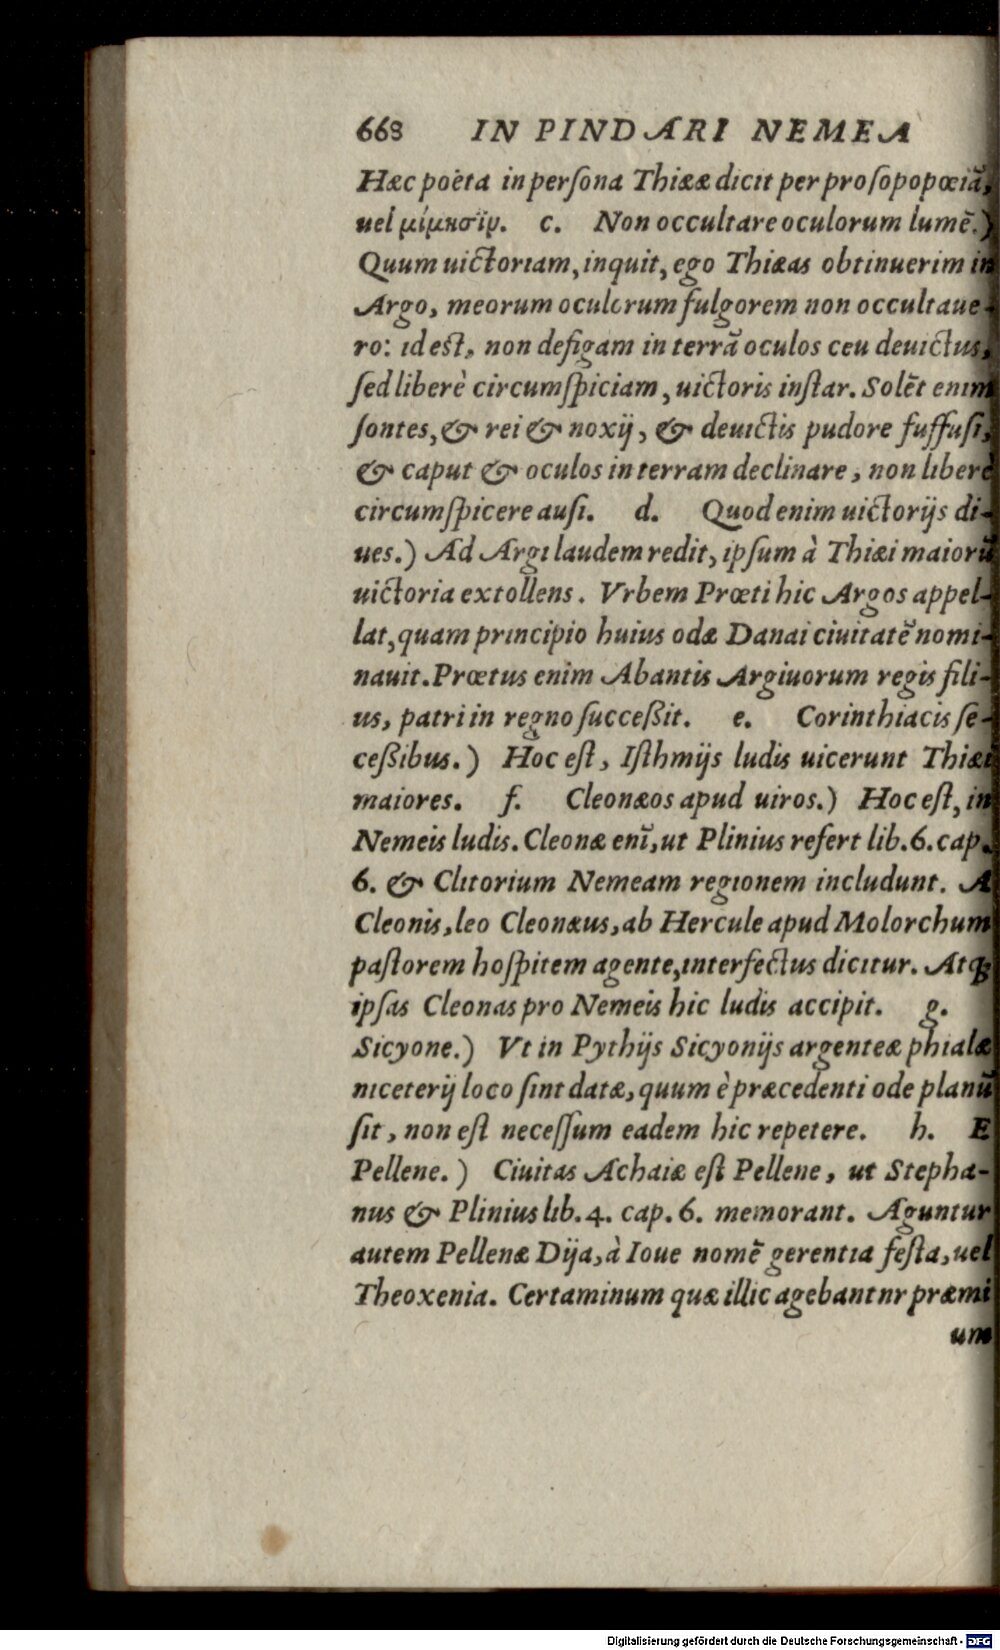 668 IN PINDARI NEMEA
Hæc poëta in persona Thiææ dicit per prosopopœiã,
uel μίμησιν. c. Non occultare oculorum lumẽ.)
Quum uictoriam, inquit, ego Thiæas obtinuerim in
Argo, meorum oculorum fulgorem non occultaue-
ro: id est, non defigam in terrã oculos ceu deuictus,
sed liberè circumspiciam, uictoris instar. Solẽt enim
sontes, & rei & noxij, & deuictis pudore fuffusi,
& caput & oculos in terram declinare, non liberè
circumspicere ausi. d. Quod enim uictorijs di-
ues.) Ad Argi laudem redit, ipsum à Thiæi maiorũ
uictoria extollens. Vrbem Prœti hic Argos appel-
lat, quam principio huius odæ Danai ciuitatẽ nomi-
nauit. Prœtus enim Abantis Argiuorum regis fili-
us, patri in regno succeßit. e. Corinthiacis se-
ceßibus.) Hoc est, Isthmijs ludis uicerunt Thiæi
maiores. f. Cleonæos apud uiros.) Hoc est, in
Nemeis ludis. Cleonæ enĩ, ut Plinius refert lib. 6. cap.
6. & Clitorium Nemeam regionem includunt. A
Cleonis, leo Cleonæus, ab Hercule apud Molorchum
pastorem hospitem agente, interfectus dicitur. Atq;
ipsas Cleonas pro Nemeis hic ludis accipit. g.
Sicyone.) Vt in Pythijs Sicyonijs argenteæ phialæ
niceterij loco sint datæ, quum è præcedenti ode planũ
sit, non est necessum eadem hic repetere. h. E
Pellene.) Ciuitas Achaiæ est Pellene, ut Stepha-
nus & Plinius lib. 4. cap. 6. memorant. Aguntur
autem Pellenæ Dija, à Ioue nomẽ gerentia festa, uel
Theoxenia. Certaminum quæ illic agebantnr præmi
um
Digitalisierung gefördert durch die Deutsche Forschungsgemeinschaft - DFG